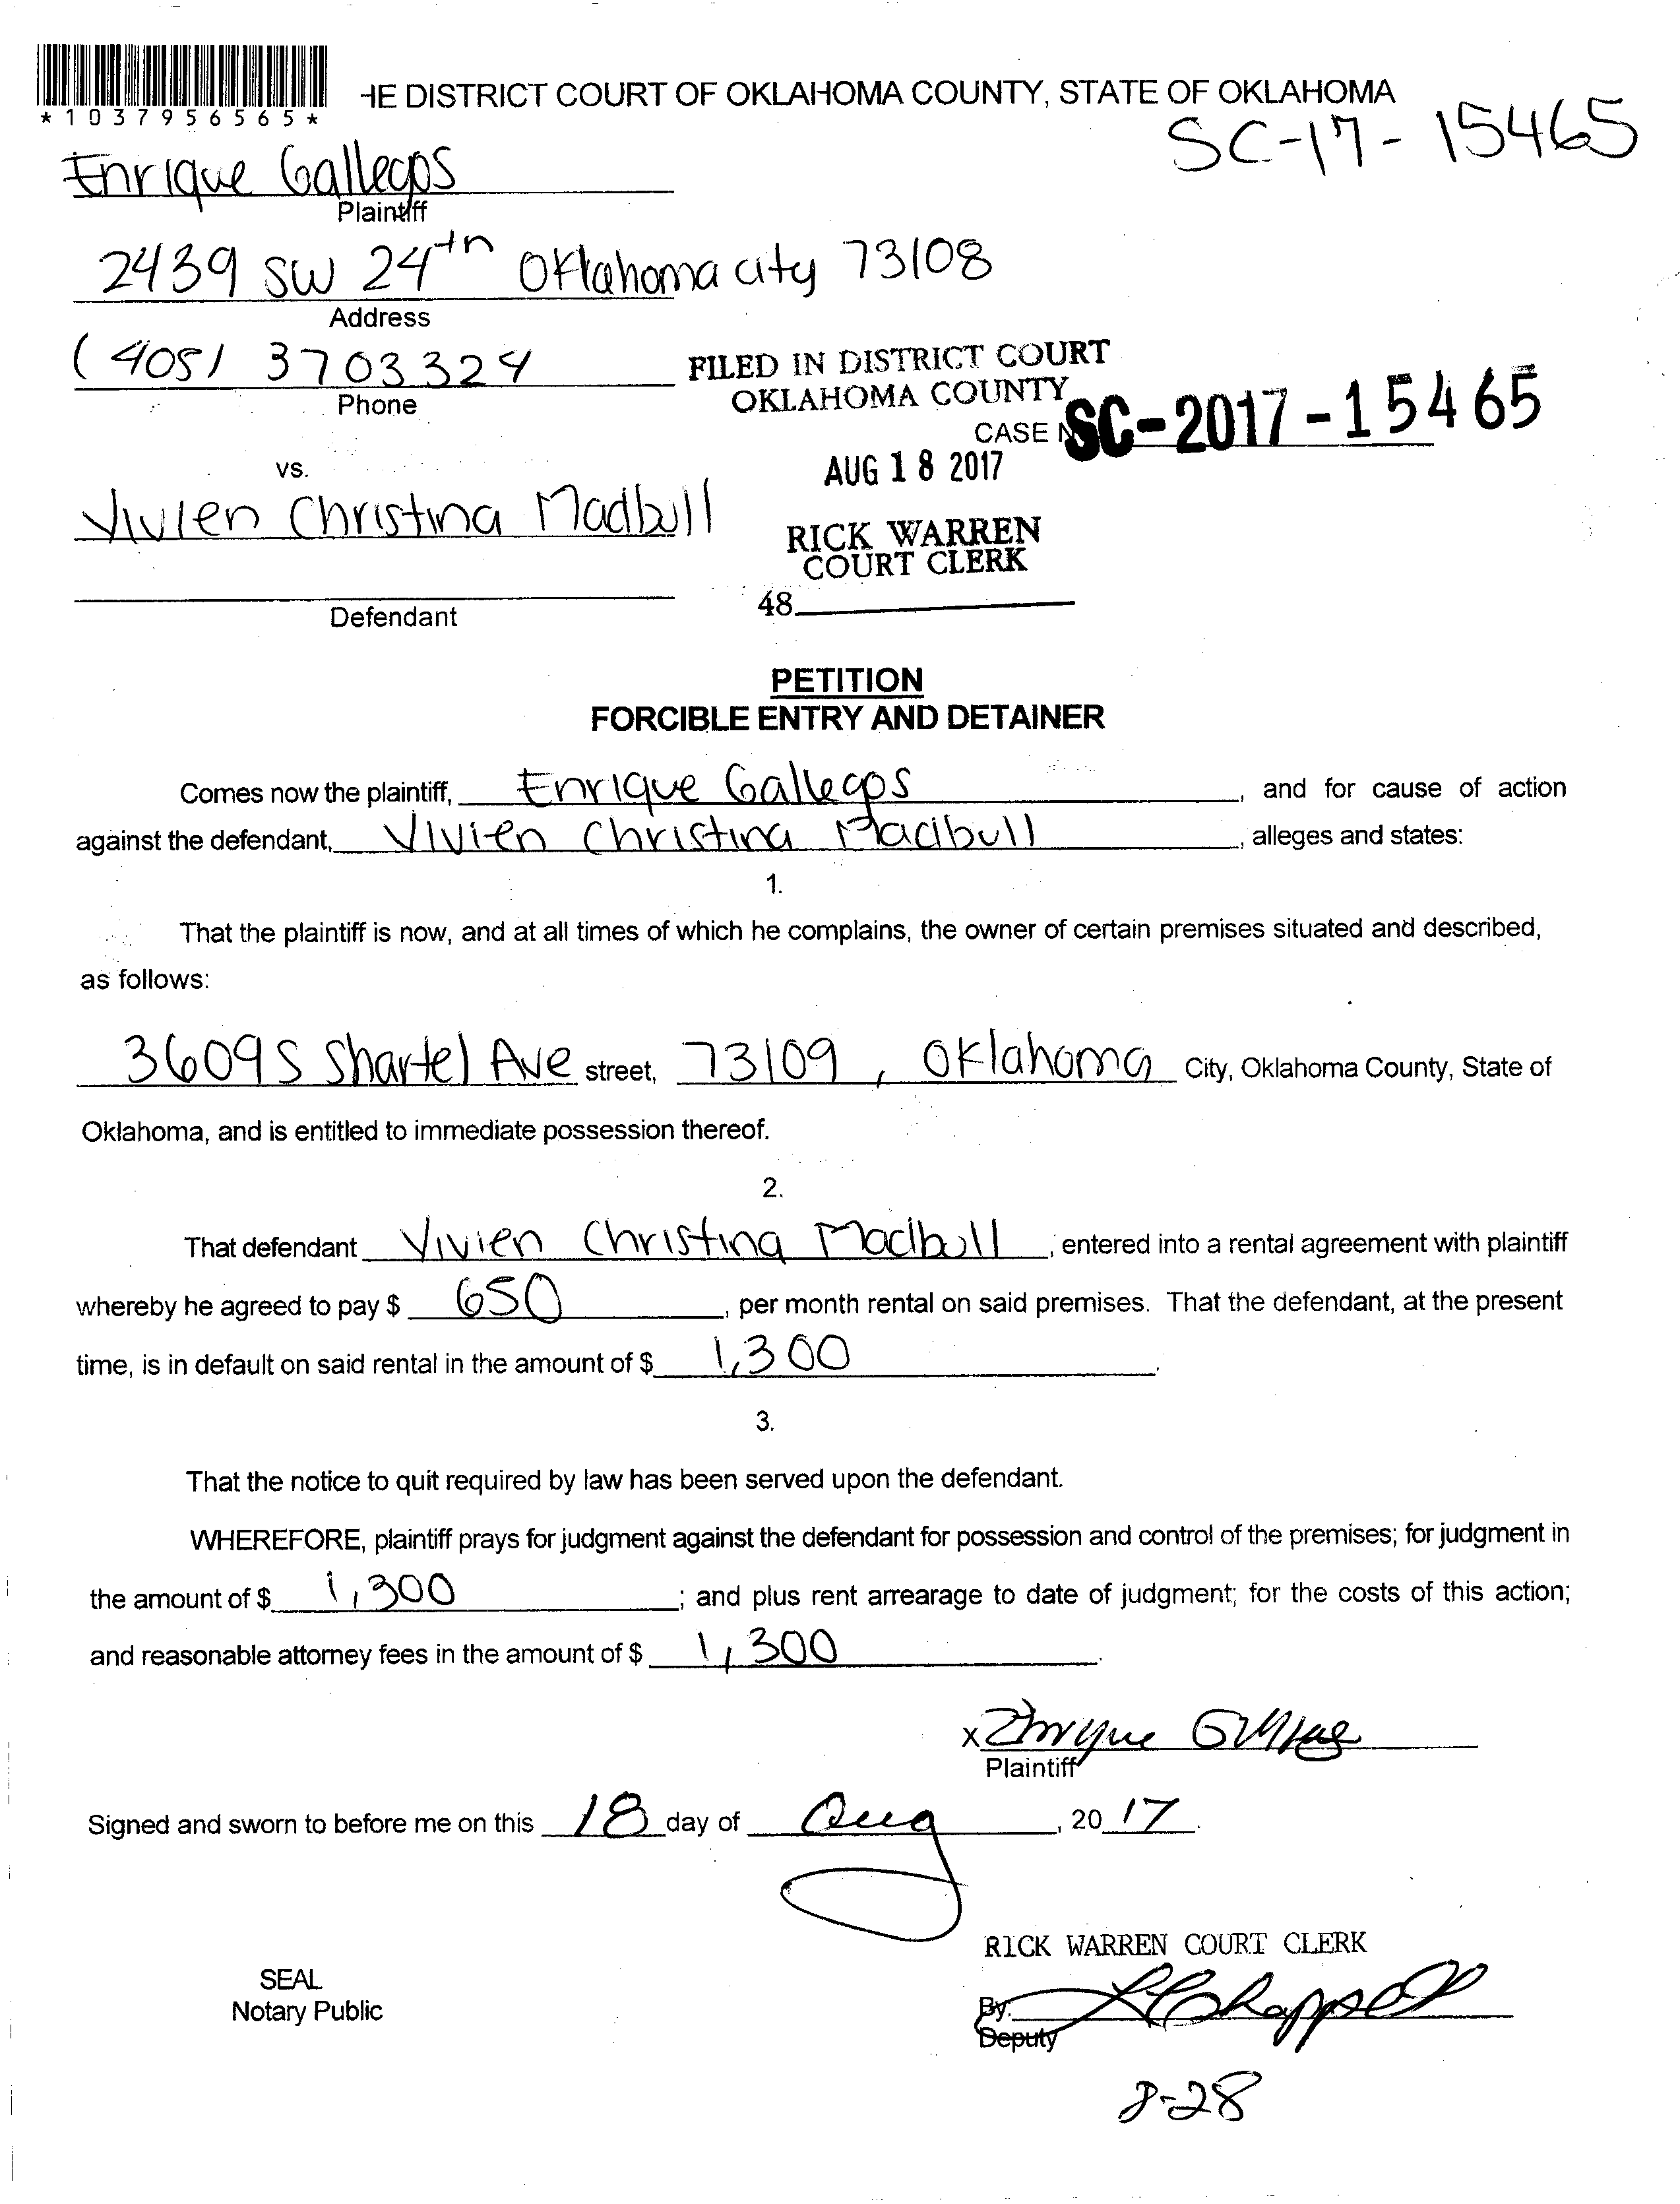 HE DISTRICT COURT OF OKLAHOMA COUNTY, STATE OF OKLAHOMA
*1037956565*
SC-17-15465
Enrique Gallegos
Plaintiff
2439 SW 24th Oklahoma city 73108
Address
(405) 3703324
Phone
FILED IN DISTRICT COURT
OKLAHOMA COUNTY
CASE N SC-2017-15465
AUG 18 2017
vs.
Vivien Christina Madbull
RICK WARREN
COURT CLERK
48
Defendant
PETITION
FORCIBLE ENTRY AND DETAINER
Comes now the plaintiff, Enrique Gallegos, and for cause of action
against the defendant, Vivien Christina Madbull, alleges and states:
1.
That the plaintiff is now, and at all times of which he complains, the owner of certain premises situated and described,
as follows:
3609 S Shartel Ave street, 73109, Oklahoma City, Oklahoma County, State of
Oklahoma, and is entitled to immediate possession thereof.
2.
That defendant Vivien Christina Madbull, entered into a rental agreement with plaintiff
whereby he agreed to pay $ 650, per month rental on said premises. That the defendant, at the present
time, is in default on said rental in the amount of $ 1,300.
3.
That the notice to quit required by law has been served upon the defendant.
WHEREFORE, plaintiff prays for judgment against the defendant for possession and control of the premises; for judgment in
the amount of $ 1,300; and plus rent arrearage to date of judgment; for the costs of this action;
and reasonable attorney fees in the amount of $ 1,300.
X Enrique
Plaintiff
Signed and sworn to before me on this 18 day of Aug, 2017.
RICK WARREN COURT CLERK
SEAL
Notary Public
By:
Deputy
8-28